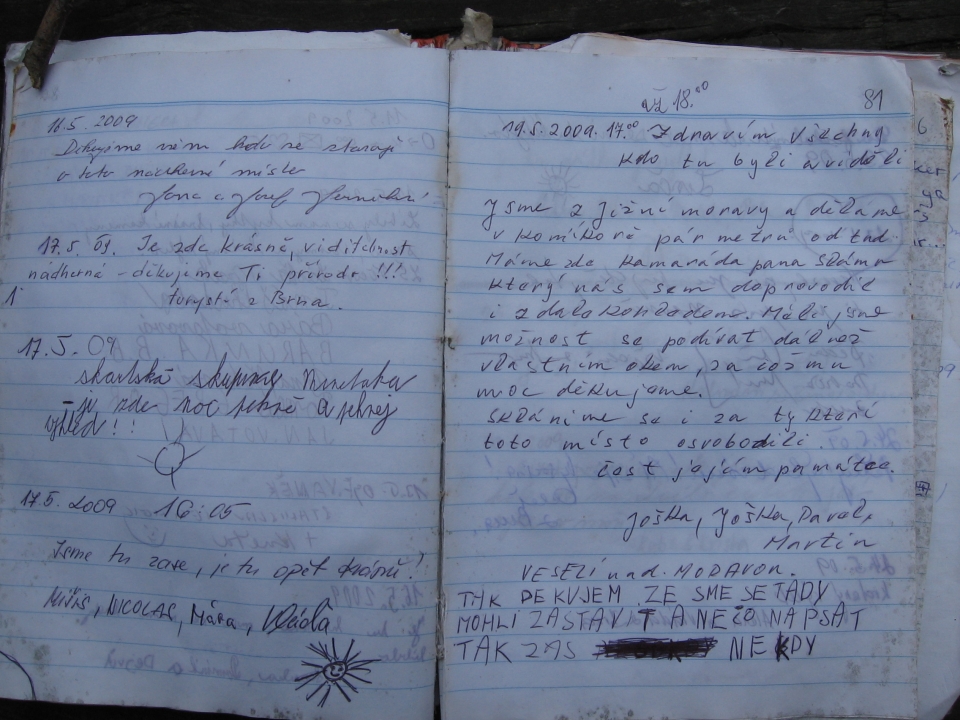 16.5. 2009
Děkujeme všem kdo se starají
o toto nádherné místo
Jana a Josef
17.5. 09. Je zde krásně, viditelnost
nadherná - děkujeme Ti přírodo !!!
turysté z Brna.
17.5. 09
skautská skupina
je zde moc pekně a peknej
výhled!!
17.5. 2009 16:05
Jsme tu zase, je tu opět krásně!
NICOLAS, Mára,
81
až 18.00
19.5.2009. 17.00 Zdravím všechny
kdo tu byli a viděli
Jsme z Jižní moravy a děláme
v Komíkově pár metrů od tud.
Máme zde kamaráda pana
který nás sem doprovodil
i z dalekohledem. Měli jsme
možnost se podívat dál než
vlastním okem, za což mu
moc děkujeme.
Skláníme se i za ty kteří
toto místo osvobodili
čest jejich památce.
Joška, Joška, Pavel,
Martin
VESELÍ nad. MORAVOU.
TAK DEKUJEM ZE SME SE TADY
MOHLI ZASTAVIT A NEČO NAPSAT
TAK ZAS NEKDY